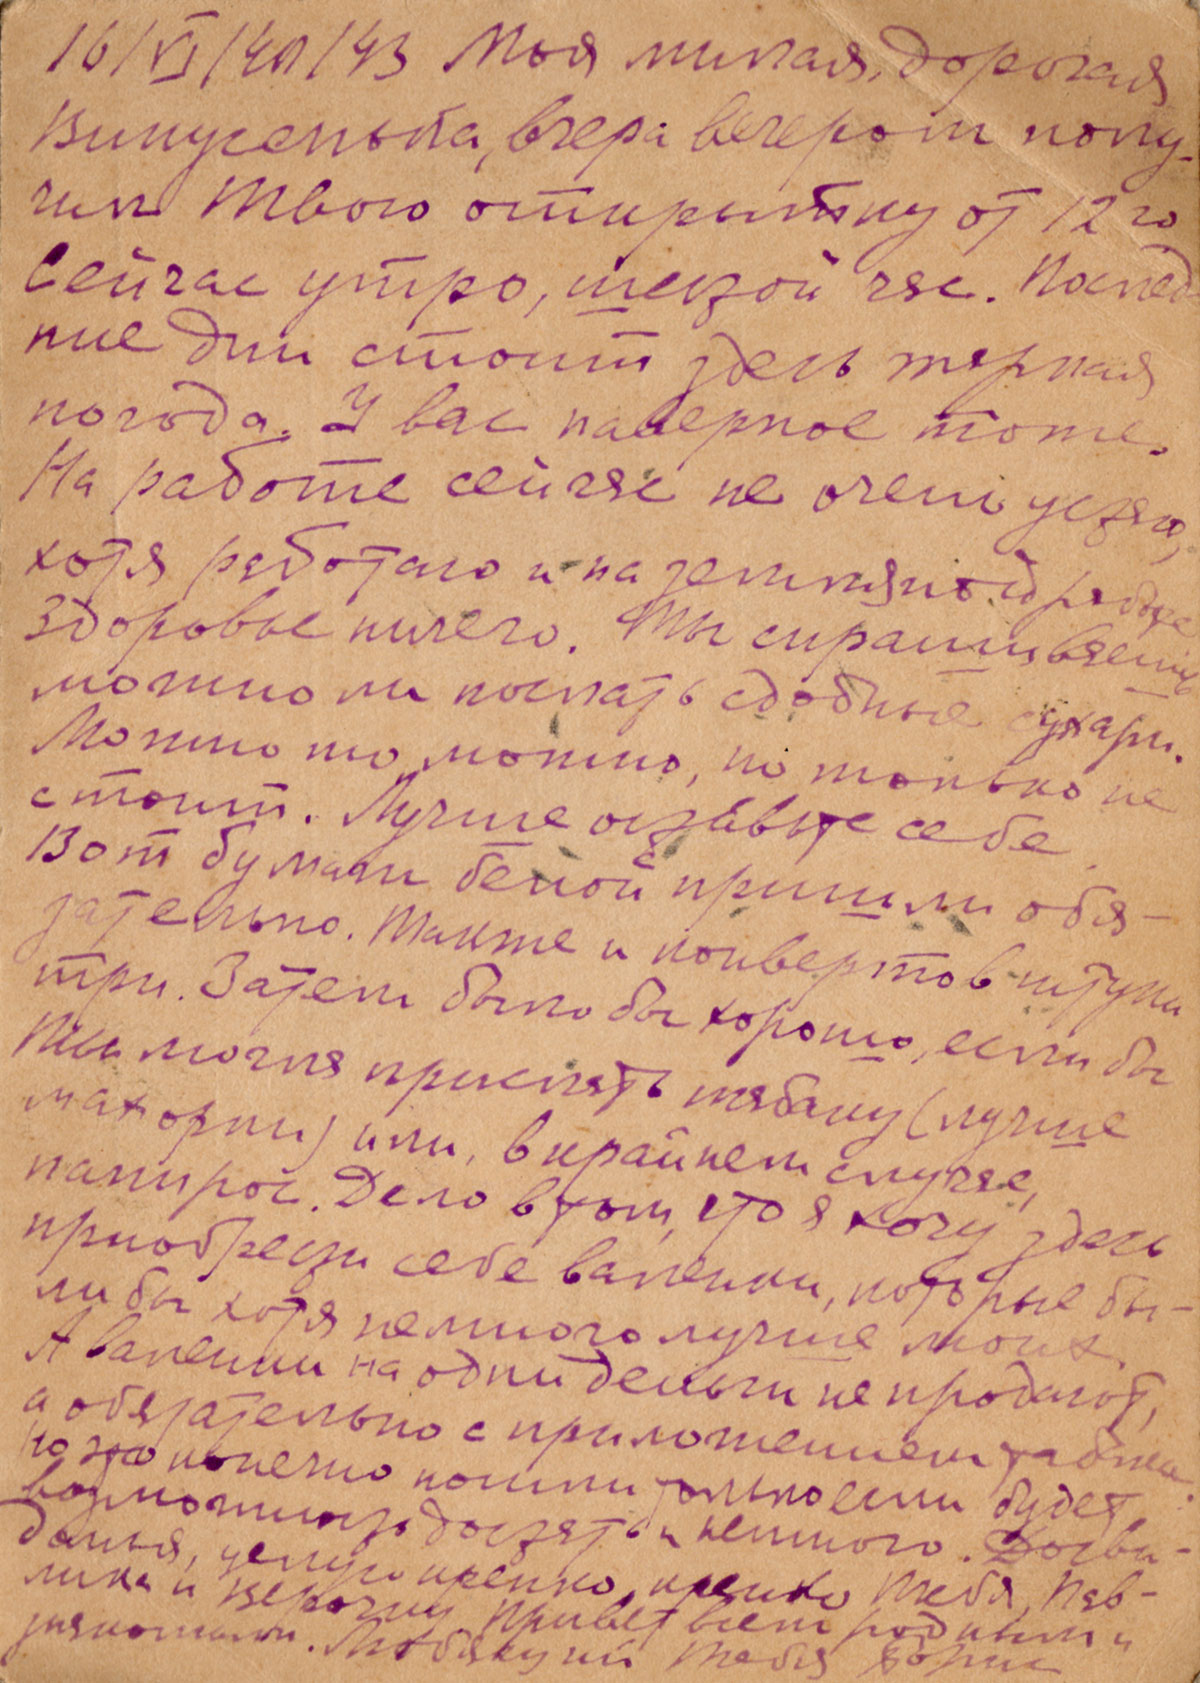 16/VI/40/43 Моя милая, дорогая
Винусенька, вчера вечером полу-
чил Твою открытку от 12го
Сейчас утро, шестой час. Послед-
ние дни стоит здесь жаркая
погода. У вас наверное тоже.
На работе сейчас не очень устаю,
хотя работаю и на земляной работе
Здоровье ничего. Ты спрашиваешь
можно ли послать сдобные сухари.
Можно то можно, но только не
стоит. Лучше оставьте себе.
Вот бумаги белой пришли обя-
зательно. Также и конвертов штуки
три. Затем было бы хорошо, если бы
Ты могла прислать табаку (лучше
махорки) или, в крайнем случае,
папирос. Дело в том, что я хочу здесь
приобрести себе валенки, которые бы-
ли бы хотя немного лучше моих.
А валенки на одни деньги не продают,
а обязательно с приложением табака.
Но это конечно пошли только если будет
возможность достать и немного. Досви-
данья, целую крепко, крепко Тебя, Пав-
лика и Верочку Привет всем родным и
знакомым. Любящий Тебя Борис